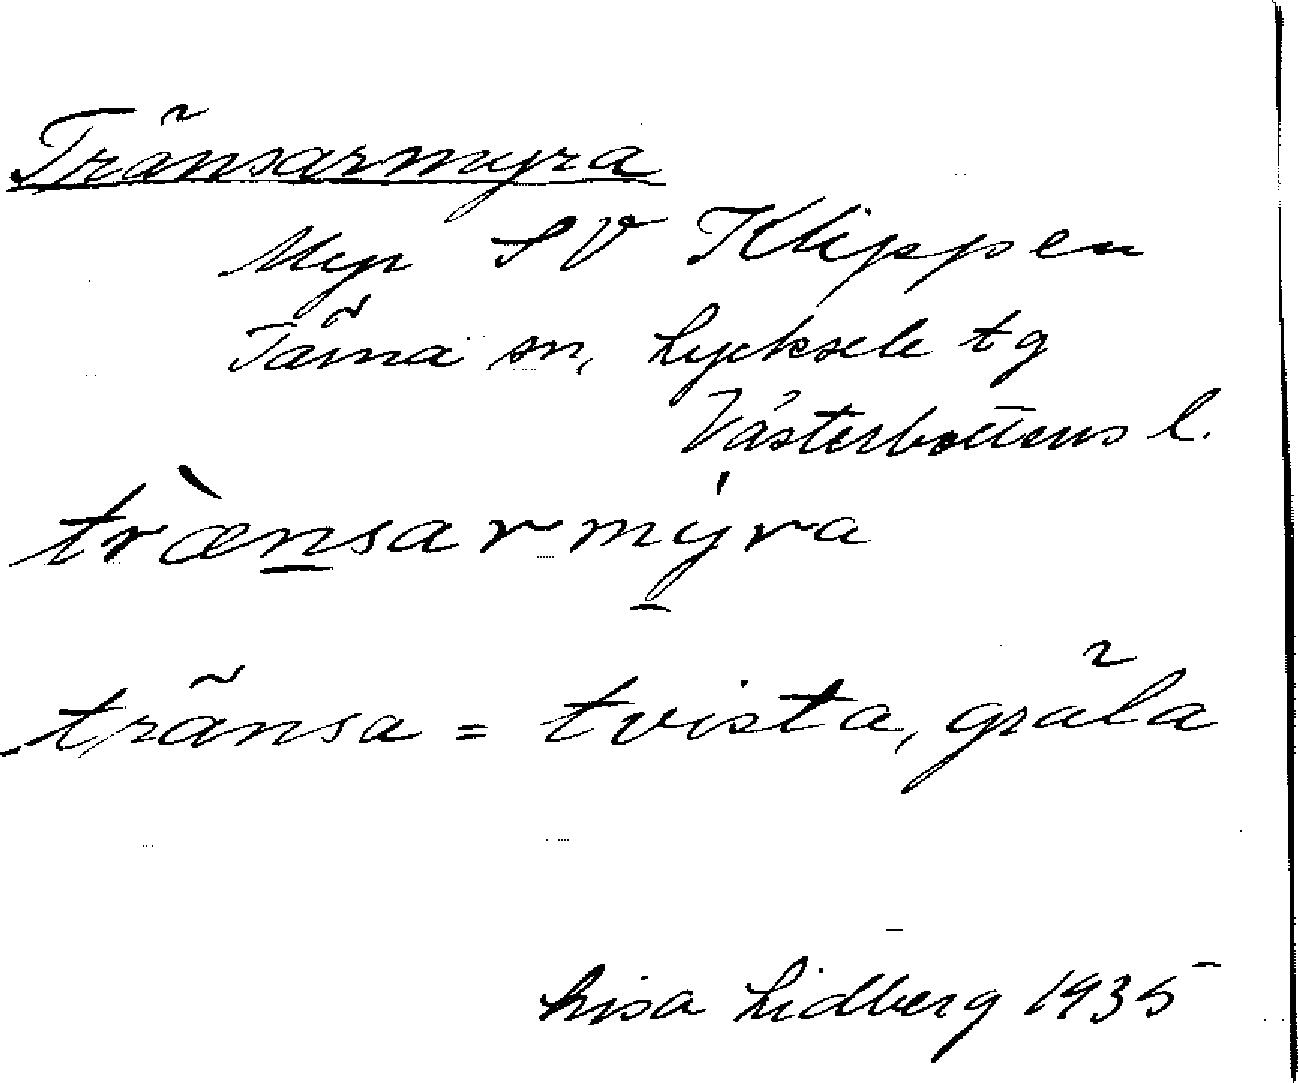 Tränsarmyra
Myr SV Klippen
Tärna sn, Lycksele tg
Västerbottens l.
træ̀nsarmýra
tränsa = tvista, gräla
Lisa Lidberg 1935